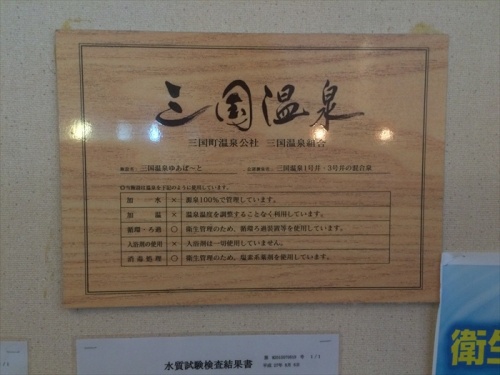 三国温泉
三国町温泉公社 三国温泉組合
施設名 三国温泉ゆあぽーと 三国温泉1号井・3号井の混合泉
加水 × 源泉100%で管理しています。
加温 × 温泉温度を調整することなく利用しています。
循環・ろ過 ○ 衛生管理のため、循環ろ過装置等を使用しています。
入浴剤の使用 × 入浴剤は一切使用していません。
消毒処理 ○ 衛生管理のため、塩素系薬剤を使用しています。
水質試験検査結果書
1/1
衛生